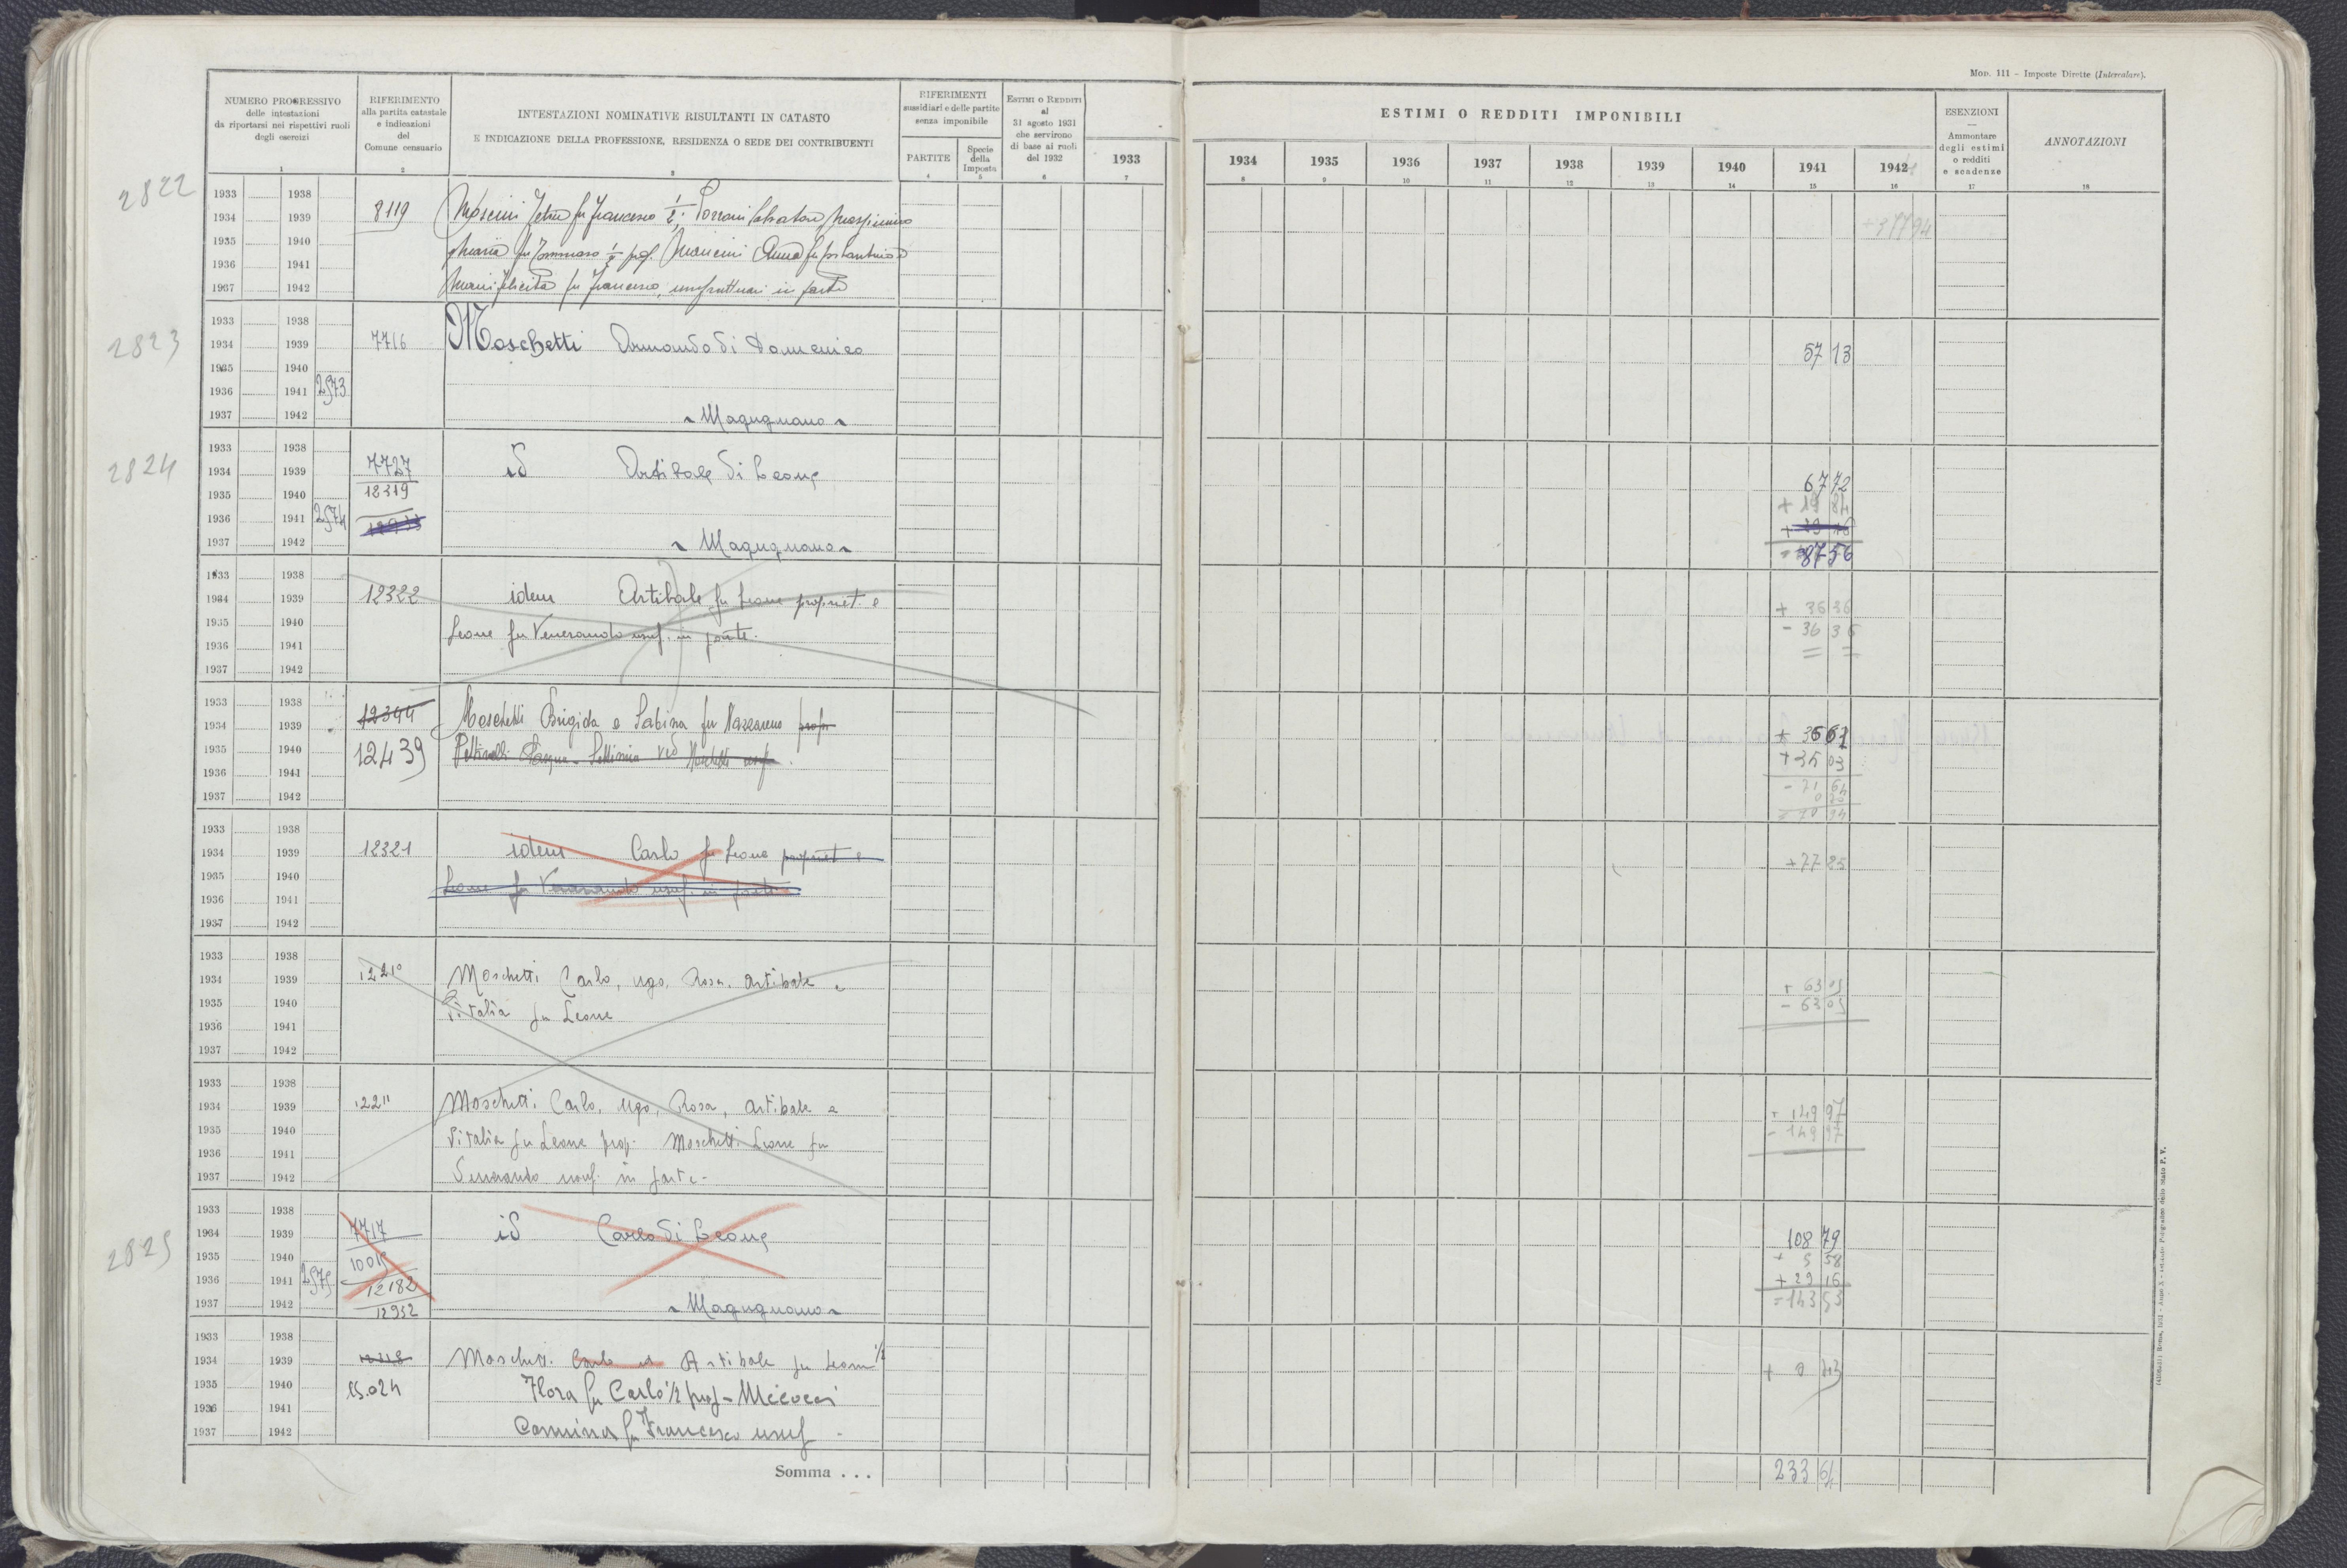 MOD. 111 – Imposte Dirette (Intercalare).
NUMERO PROGRESSIVO
delle intestazioni
da riportarsi nei rispettivi ruoli
degli esercizi
RIFERIMENTO
alla partita catastale
e indicazioni
del
Comune censuario
INTESTAZIONI NOMINATIVE RISULTANTI IN CATASTO
E INDICAZIONE DELLA PROFESSIONE, RESIDENZA O SEDE DEI CONTRIBUENTI
RIFERIMENTI
sussidiari e delle partite
senza imponibile
PARTITE
Specie
della
Imposta
ESTIMI O REDDITI
al
31 agosto 1931
che servirono
di base ai ruoli
del 1932
ESTIMI O REDDITI IMPONIBILI
1933 1934 1935 1936 1937 1938 1939 1940 1941 1942
ESENZIONI
—
Ammontare
degli estimi
o redditi
e scadenze
ANNOTAZIONI
1 2 3 4 5 6 7 8 9 10 11 12 13 14 15 16 17 18
2822
1933 1938
1934 1939 8119 fu Francesco 1/2
1935 1940 Maria fu Tommaso 1/2 Mancini Anna fu
1936 1941
1937 1942 Felicita fu Francesco, in parte
2823
1933 1938
1934 1939 7716 Moschetti Armando di Domenico 57 13
1935 1940
1936 1941 2573
1937 1942 Magugnano
2824
1933 1938
1934 1939 7727 id Artibale di Leone 67 72
1935 1940 12319 + 19 84
1936 1941 2574
1937 1942 Magugnano 87 56
1933 1938
1934 1939 12322 idem Artibale fu Leone propriet. e + 36 36
1935 1940 Leone fu Venerando usuf. in parte. - 36 36
1936 1941
1937 1942
1933 1938
1934 1939 12344 Moschetti Brigida e Sabina fu Nazzareno propr + 36 61
1935 1940 12439 Pasqua Settimia ved Moschetti usuf. + 35 03
1936 1941 71 64
1937 1942
1933 1938
1934 1939 12321 idem Carlo fu Leone propriet e + 77 85
1935 1940 Leone fu Venerando usuf. in parte
1936 1941
1937 1942
1933 1938
1934 1939 12210 Moschetti Carlo, Ugo, Rosa, Artibale e + 63 05
1935 1940 Vitalia fu Leone - 63 05
1936 1941
1937 1942
1933 1938
1934 1939 12211 Moschetti Carlo, Ugo, Rosa, Artibale e + 149 97
1935 1940 Vitalia fu Leone prop. Moschetti Leone fu - 149 97
1936 1941
1937 1942 Venerando usuf. in parte -
2825
1933 1938
1934 1939 7717 id Carlo di Leone 108 79
1935 1940 + 5 58
1936 1941 2575 12182 + 29 16
1937 1942 12952 Magugnano = 143 53
1933 1938
1934 1939 Moschett. Carlo ed Artibale fu Leone 1/2
1935 1940 15.024 Flora fu Carlo 1/2 prop - Micocci
1936 1941
1937 1942 fu Francesco usuf -
Somma . . . 233 61